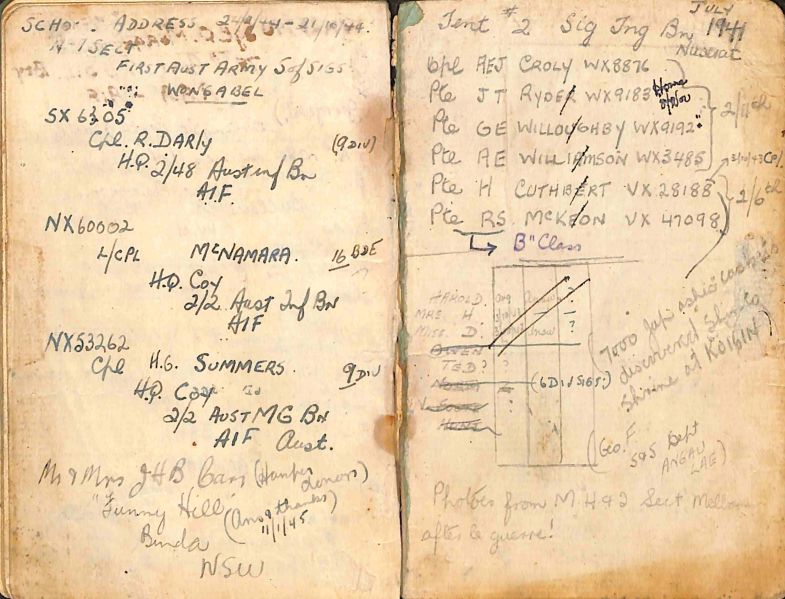 SCHO. ADDRESS 24/8/44 - 21/10/44.
N-1 SECT
FIRST AUST ARMY S of SIGS
WONGABEL
SX 6305
Cpl. R. DARLY (9 DIV)
H.Q. 2/48 Aust inf Bn
AIF
NX60002
L/CPL McNAMARA. 16 BDE
H.Q. Coy
2/2 Aust Inf Bn
AIF
NX53262
Cpl H.G. SUMMERS 9 DIV
H.Q. Coy
2/2 AUST MG Bn
AIF Aust.
Mr & Mrs J H B Cars (Hamper donors)
"Funny Hill" (Ans & thanks)
11/1/45
Binda
NSW
Tent # 2 Sig Tng Bn JULY 1941
Nuseirat
Cpl AEJ CROLY WX8876
Pte J T RYDER WX9183 Home
Pte GE WILLOUGHBY WX9192
2/11th
Pte AE WILLIAMSON WX3485
Pte H CUTHBERT VX 28188
2/6th
Pte RS McKEON VX 47098
B" Class
HAROLD.
MRS. H
MISS. D.
OWEN
TED? ?
(6 DIV SIGS.)
HUNT
7000 Japs ashes
discovered
Shrine at KOIGIN
(Geo. F.
S&S Dept
ANGAU
LAE)
Photoes from M H & 2 Sect
after le guerre!